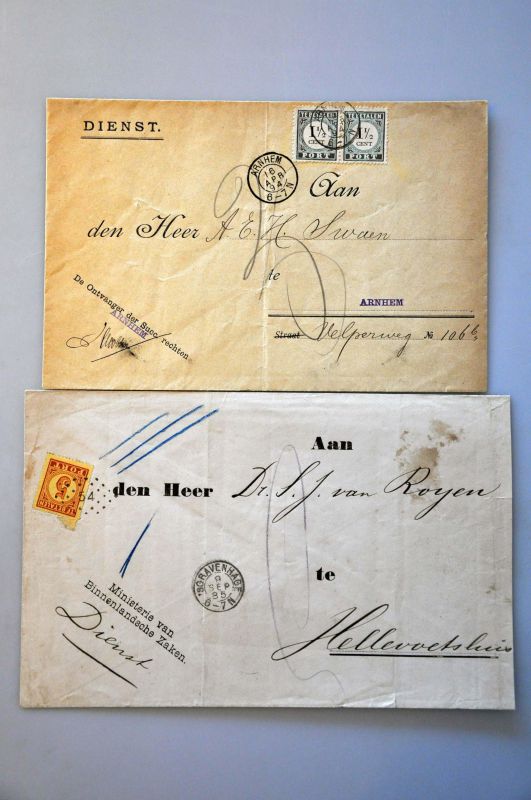 DIENST.
TE BETALEN TE BETALEN
1½ 1½
CENT CENT
PORT PORT
ARNHEM
18
APR
94
6-7N
Aan
den Heer A. E. H. Swaen
te
ARNHEM
De Ontvanger der Succ. rechten
ARNHEM
Straat Velperweg № 106
Aan
den Heer Dr. S. J. van Royen
te
Hellevoetsluis
TE BETALEN
5
PORT
54
'SGRAVENHAGE
9
SEP
85
6-7N
Ministerie van
Binnenlandsche Zaken.
Dienst